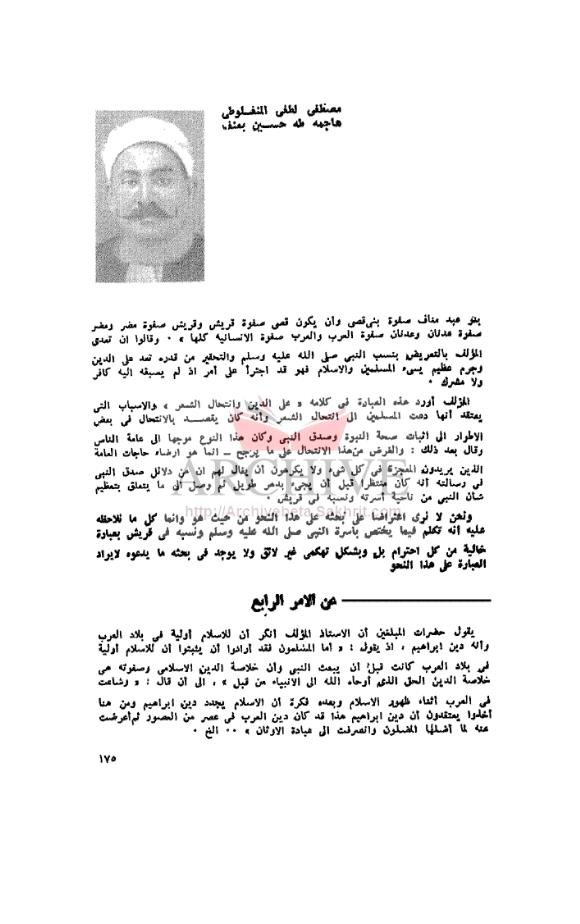 مصطفى لطفى المنفلوطى
هاجمه طه حسين بعنف
بنو عبد مناف صفوة بنى قصى وأن يكون قصى صفوة قريش وقريش صفوة مضر ومضر
صفوة عدنان وعدنان صفوة العرب والعرب صفوة الانسانية كلها » ٠ وقالوا ان تعدى
المؤلف بالتعريض بنسب النبى صلى الله عليه وسلم والتحقير من قدره تعد على الدين
وجرم عظيم يسىء المسلمين والاسلام فهو قد اجترأ على أمر اذ لم يسبقه اليه كافر
ولا مشرك ٠
المؤلف أورد هذه العبارة فى كلامه « على الدين وانتحال الشعر » والاسباب التى
يعتقد أنها دعت المسلمين الى انتحال الشعر وأنه كان يقصد بالانتحال فى بعض
الاطوار الى اثبات صحة النبوة وصدق النبى وكان هذا النوع موجها الى عامة الناس
وقال بعد ذلك : والغرض من هذا الانتحال على ما يرجح ــ انما هو ارضاء حاجات العامة
الذين يريدون المعجزة فى كل شىء ولا يكرهون أن يقال لهم ان من دلائل صدق النبى
فى رسالته أنه كان منتظرا قبل أن يجىء بدهر طويل ثم وصل الى ما يتعلق بتعظيم
شأن النبى من ناحية أسرته ونسبه فى قريش ٠
ARCHIVE
http://Archivebeta.Sakhrit.com
ونحن لا نرى اعتراضا على بحثه على هذا النحو من حيث هو وانما كل ما نلاحظه
عليه أنه تكلم فيما يختص بأسرة النبى صلى الله عليه وسلم ونسبه فى قريش بعبارة
خالية من كل احترام بل وبشكل تهكمى غير لائق ولا يوجد فى بحثه ما يدعوه لايراد
العبارة على هذا النحو
عن الامر الرابع
يقول حضرات المبلغين أن الاستاذ المؤلف أنكر أن للاسلام أولية فى بلاد العرب
وأنه دين ابراهيم ، اذ يقول : « أما المسلمون فقد أرادوا أن يثبتوا أن للاسلام أولية
فى بلاد العرب كانت قبل أن يبعث النبى وأن خلاصة الدين الاسلامى وصفوته هى
خلاصة الدين الحق الذى أوحاه الله الى الانبياء من قبل » ، الى أن قال : « وشاعت
فى العرب أثناء ظهور الاسلام وبعده فكرة أن الاسلام يجدد دين ابراهيم ومن هنا
أخذوا يعتقدون أن دين ابراهيم هذا قد كان دين العرب فى عصر من العصور ثم أعرضت
عنه لما أضلها المضلون وانصرفت الى عبادة الاوثان » ٠٠ الخ ٠
١٧٥